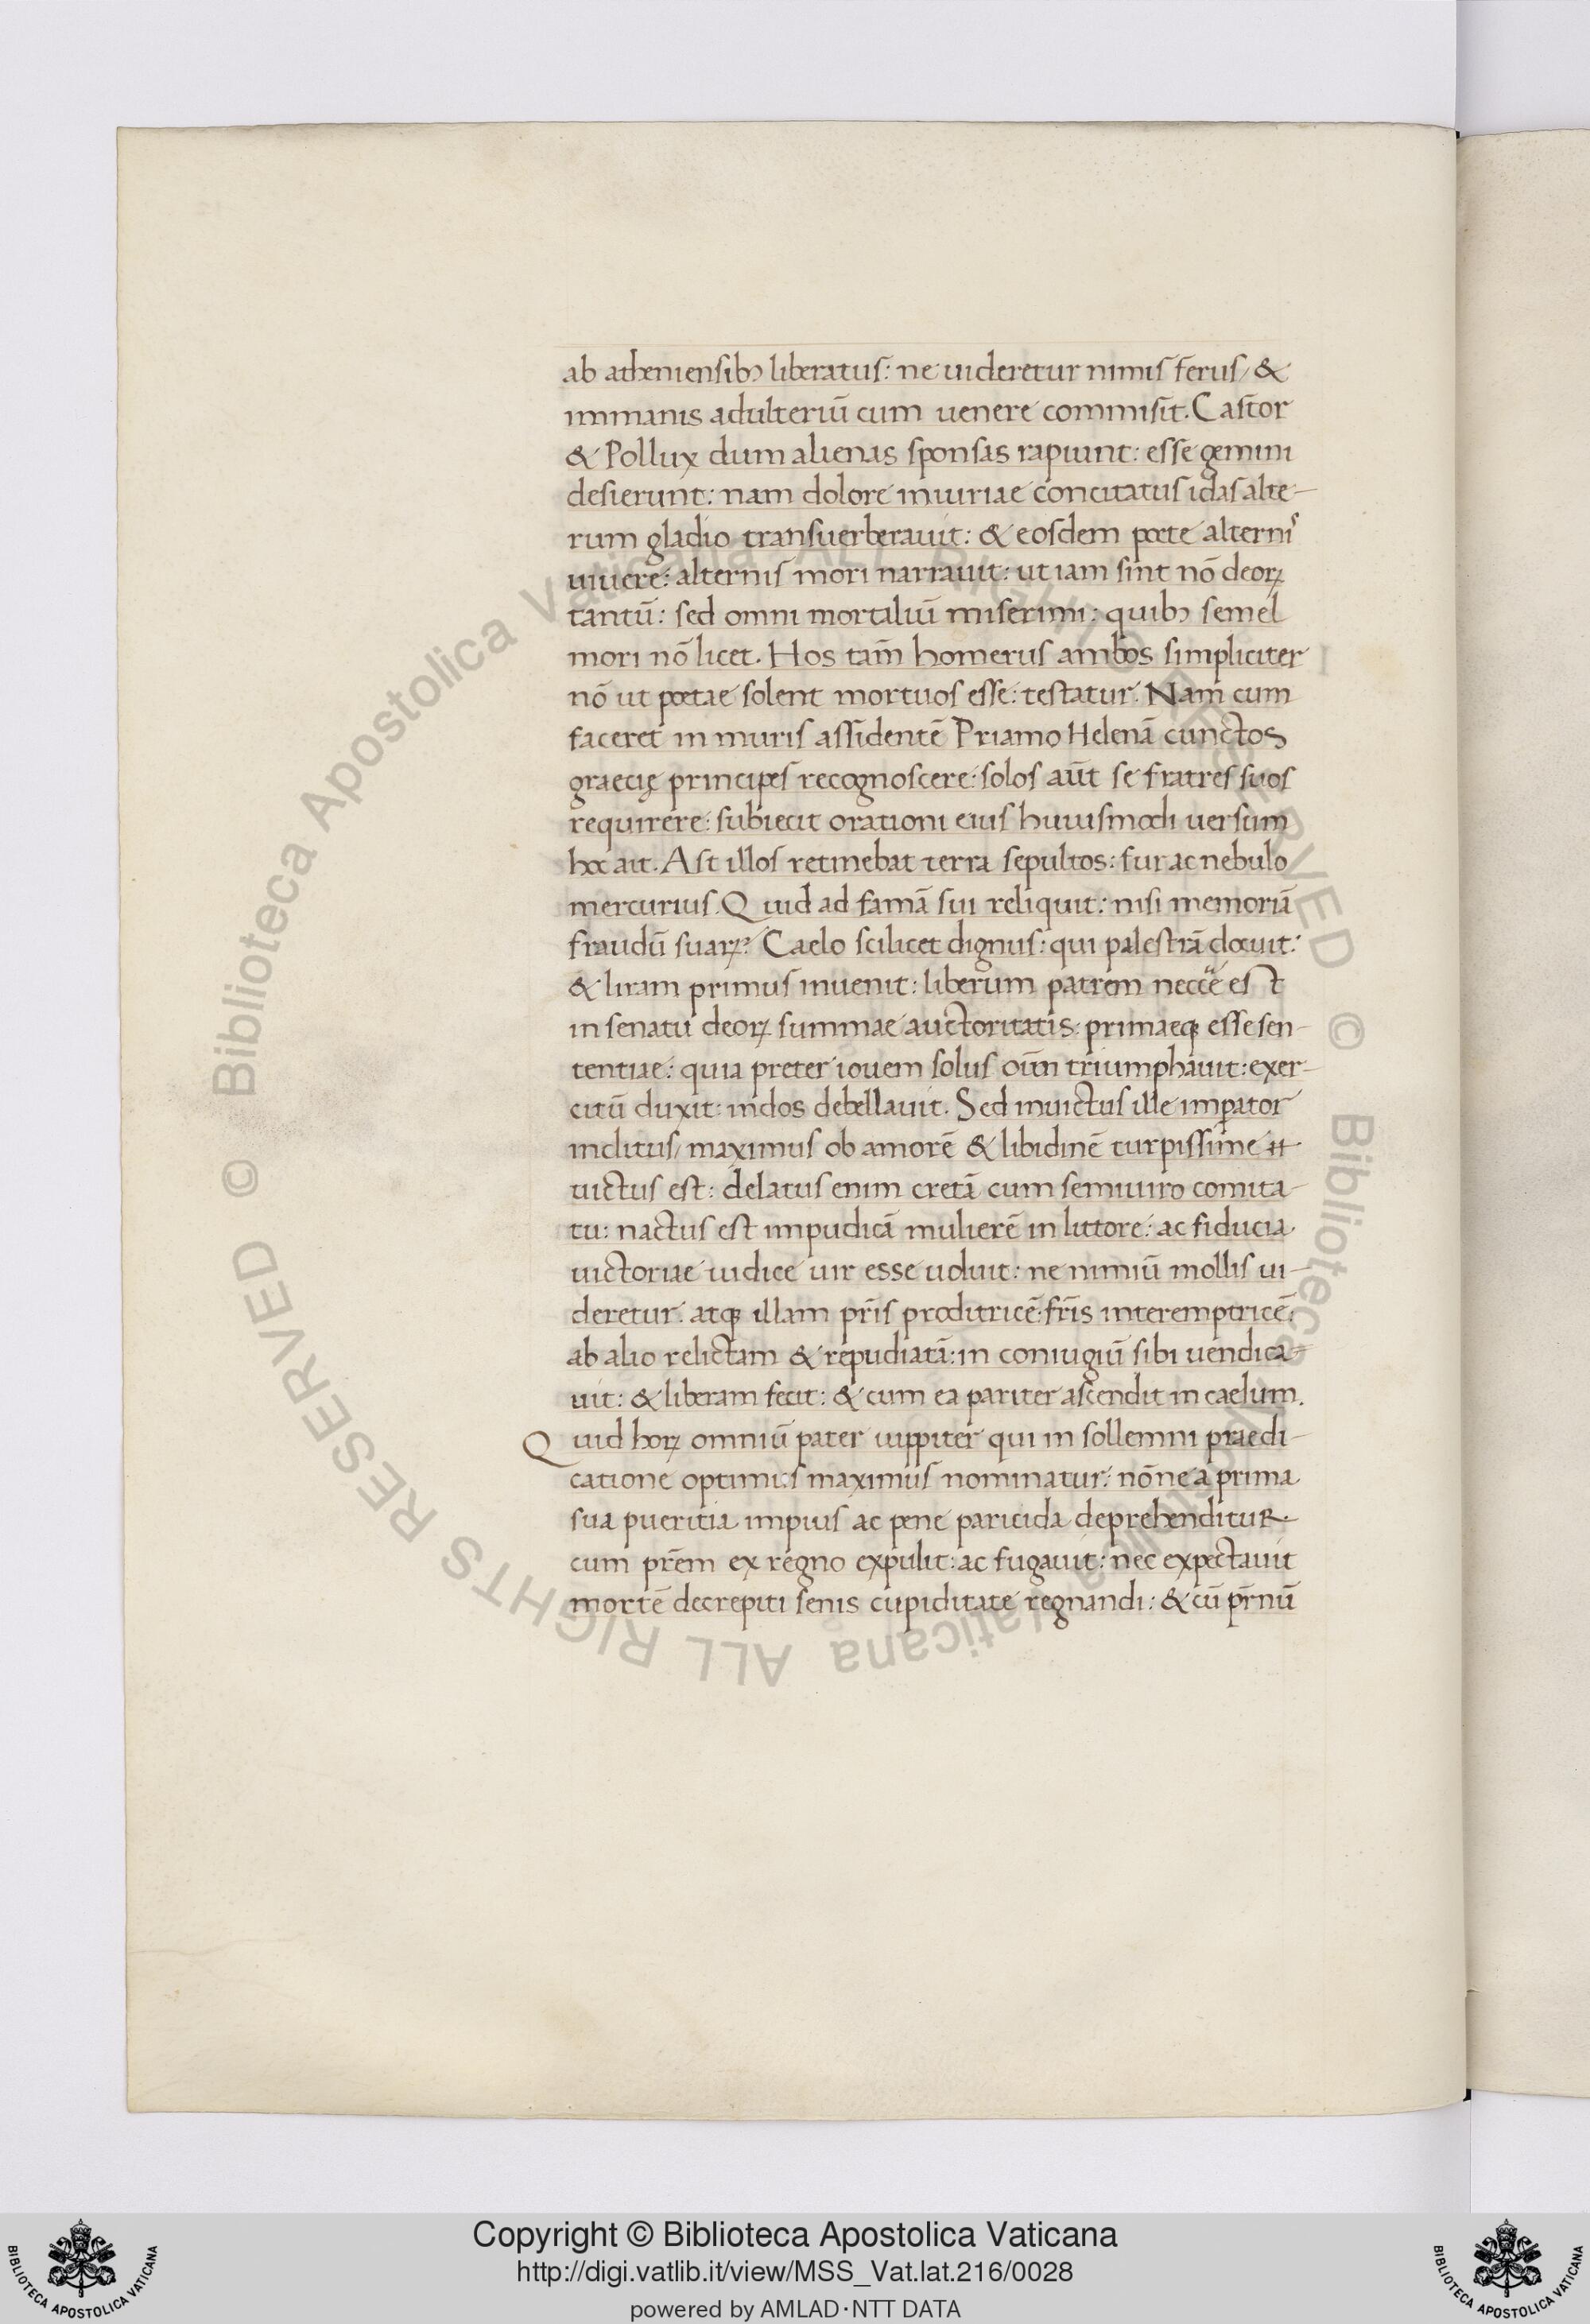 ab atheniensibꝫ liberatus: ne uideretur nimis ferus / &
immanis adulteriū cum uenere commisit. Castor
& Pollux dum alienas sponsas rapiunt: esse gemini
desierunt: nam dolore iniuriae concitatus idas alte-
rum gladio transuerberauit: & eosdem poete alternis
uiuere: alternis mori narrauit: ut iam sint nō deoꝝ
tantū: sed omni mortaliū miserimi: quibꝫ semel
mori nō licet. Hos tam̄ homerus ambos simpliciter
nō ut poetae solent mortuos esse: testatur. Nam cum
faceret in muris assidentē Priamo Helenā cunctos
graecię principes recognoscere: solos aūt se fratres suos
requirere: subiecit orationi eius huiusmodi uersum
hoc ait. Ast illos retinebat terra sepultos: fur ac nebulo
mercurius. Quid ad famā sui reliquit: nisi memoriā
fraudū suaꝝ? Caelo scilicet dignus: qui palestrā docuit:
& liram primus inuenit: liberum patrem necc̄e est
in senatu deoꝝ summae auctoritatis: primaeqꝫ esse sen-
tentiae: quia preter iouem solus oīm triumphauit: exer-
citū duxit: indos debellauit. Sed inuictus ille imꝑator
inclitus / maximus ob amorē & libidinē turpissime
uictus est: delatus enim cretā cum semiuiro comita-
tu: nactus est impudicā mulierē in littore: ac fiducia
uictoriae iudice uir esse uoluit: ne nimiū mollis ui-
deretur. atqꝫ illam pr̄is proditricē: fr̄is interemptricē:
ab alio relictam & repudiatā: in coniugiū sibi uendica-
uit: & liberam fecit: & cum ea pariter ascendit in caelum.
Quid hoꝝ omniū pater iuppiter qui in sollemni praedi-
catione optimus maximus nominatur: nōne a prima
sua pueritia impius ac pene paricida deprehenditur
cum pr̄em ex regno expulit: ac fugauit: nec expectauit
mortē decrepiti senis cupiditate regnandi: & cū pr̄nū
© Biblioteca Apostolica Vaticana ALL RIGHTS RESERVED © Biblioteca Apostolica Vaticana ALL RIGHTS RESERVED
Copyright © Biblioteca Apostolica Vaticana
http://digi.vatlib.it/view/MSS_Vat.lat.216/0028
powered by AMLAD·NTT DATA
BIBLIOTECA APOSTOLICA VATICANA
BIBLIOTECA APOSTOLICA VATICANA